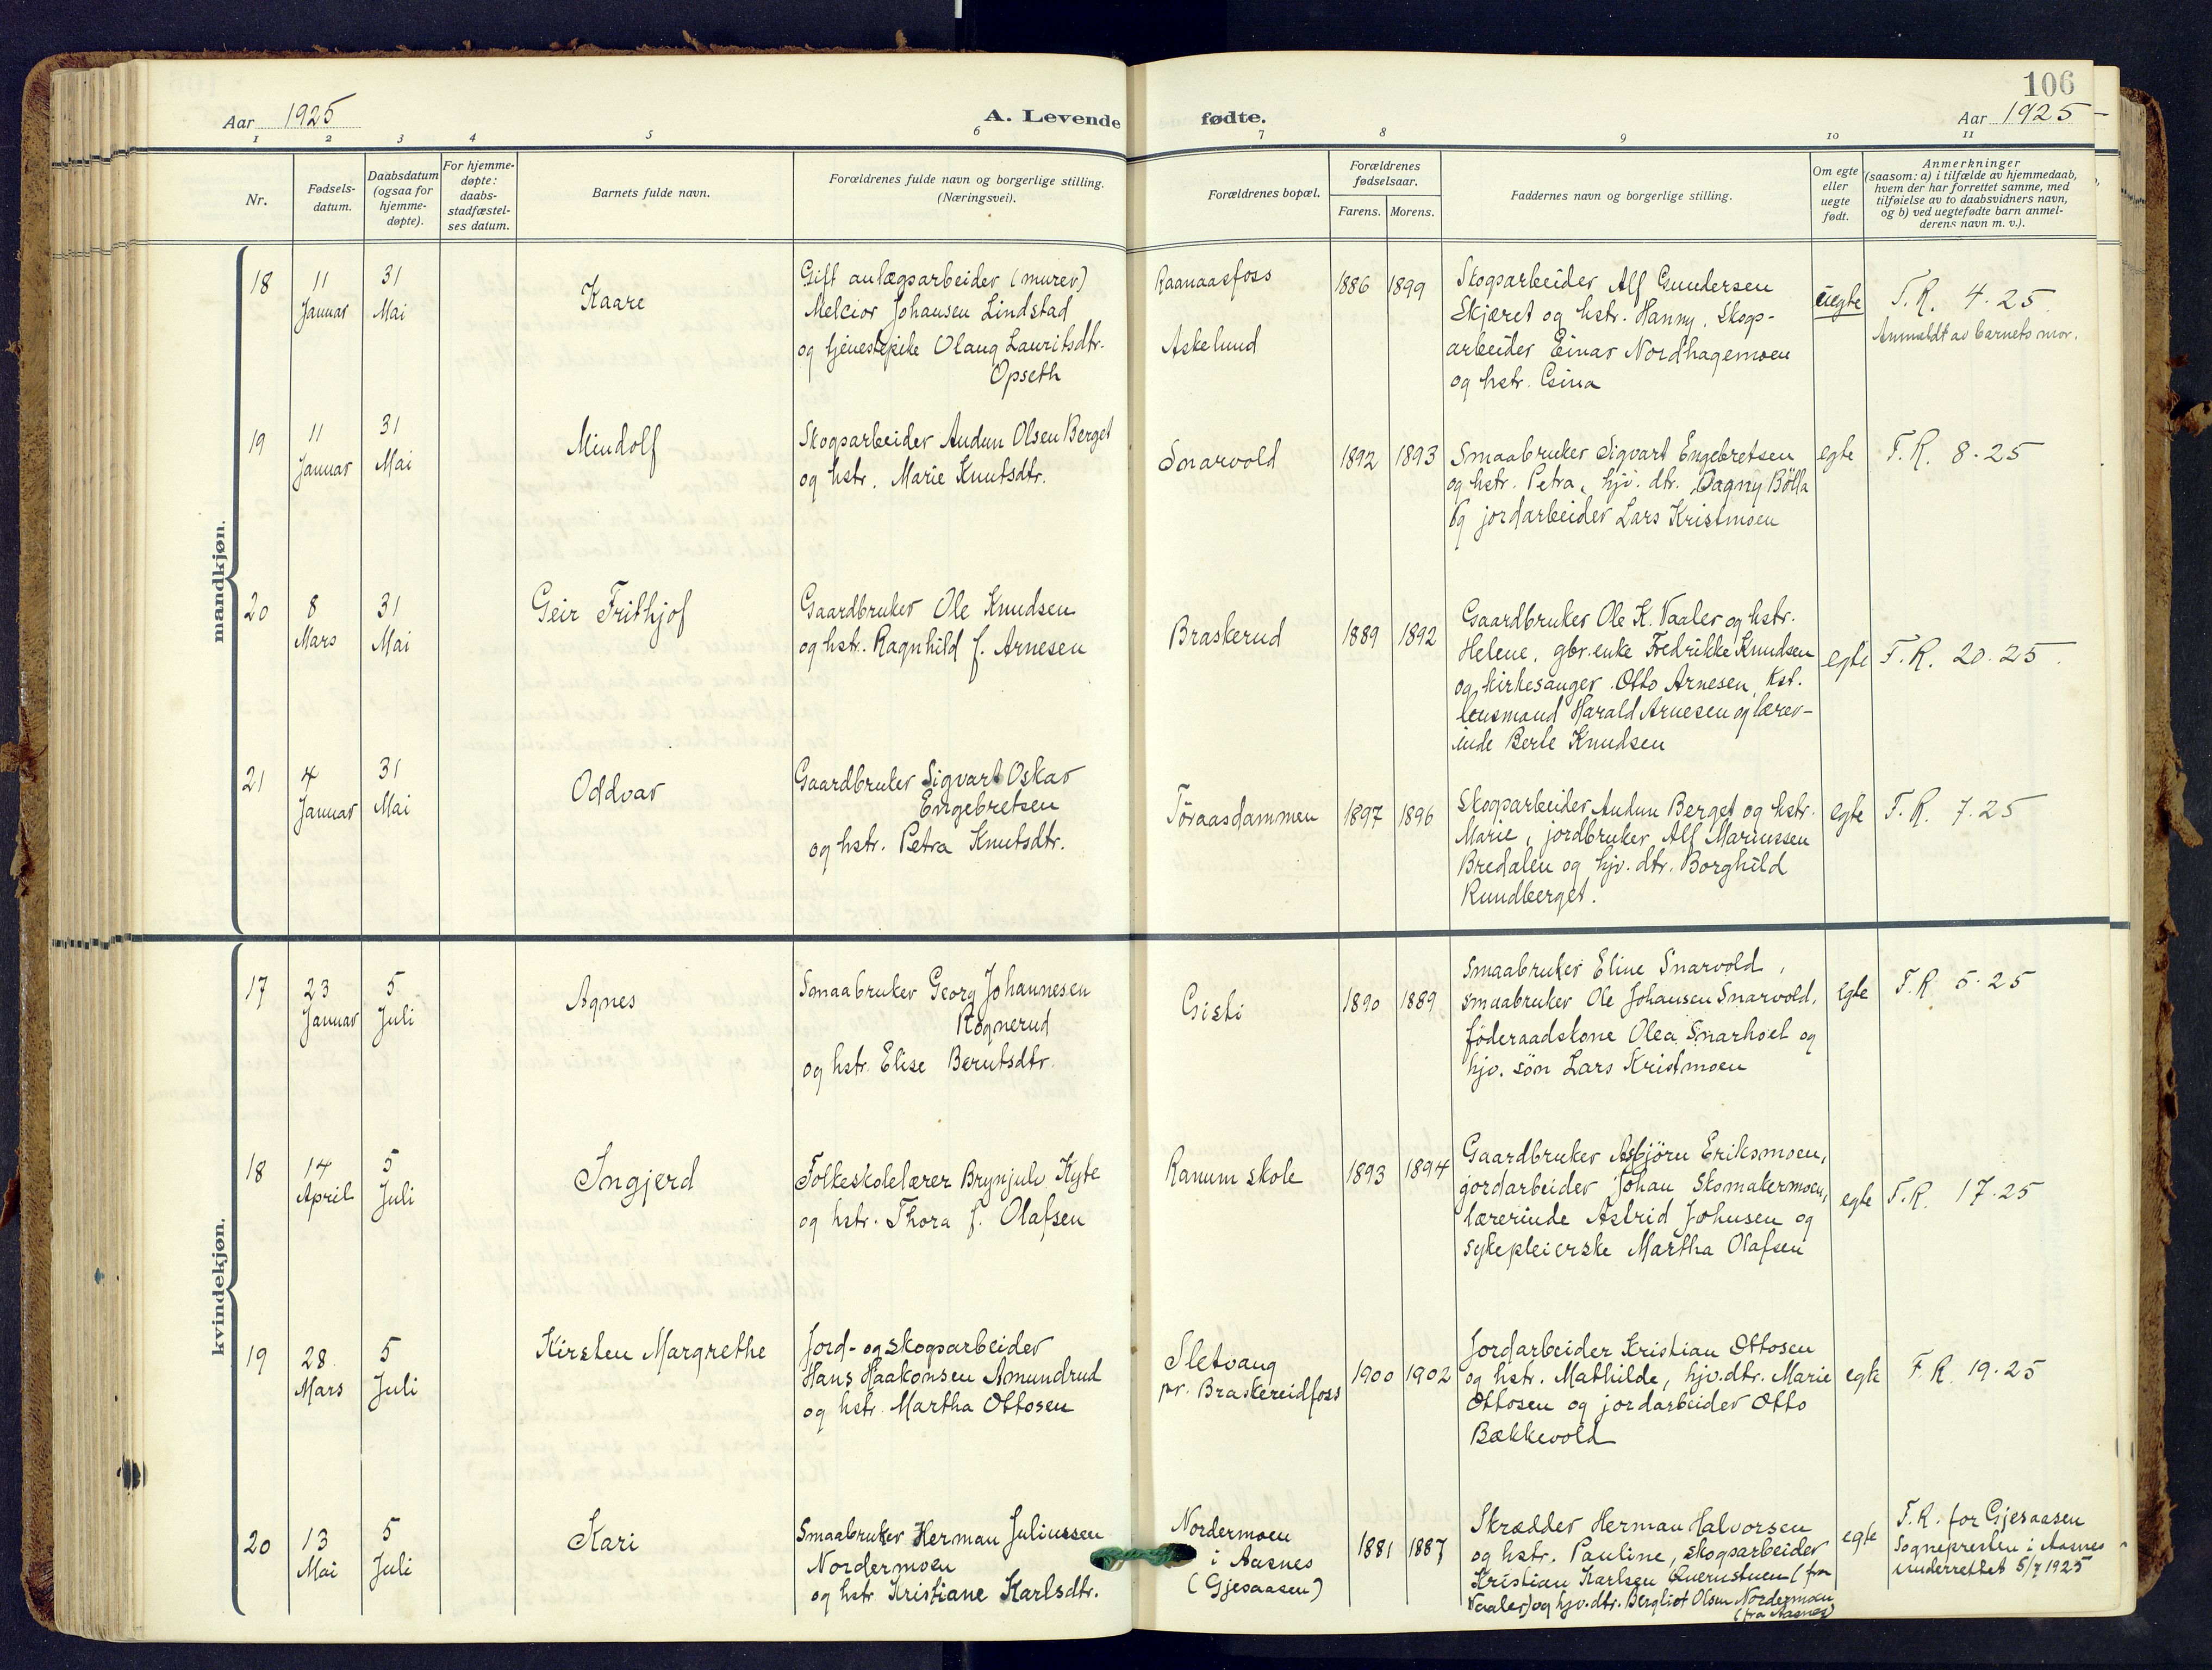 106
Aar 1925
A. Levende fødte.
Aar 1925
1 2 3 4 5 6 7 8 9 10 11
Nr.
Fødsels-
datum.
Daabsdatum
(ogsaa for
hjemme-
døpte).
For hjemme-
døpte:
daabs-
stadfæstel-
ses datum.
Barnets fulde navn.
Forældrenes fulde navn og borgerlige stilling.
(Næringsvei).
Forældrenes bopæl.
Forældrenes
fødselsaar.
Farens. Morens.
Faddernes navn og borgerlige stilling.
Om egte
eller
uegte
født.
Anmerkninger
(saasom: a) i tilfælde av hjemmedaab,
hvem der har forrettet samme, med
tilføielse av to daabsvidners navn,
og b) ved uegtefødte barn anmel-
derens navn m. v.).
mandkjøn.
18
11
Januar
31
Mai
Kaare
Gift anlægsarbeider (murer)
Melcior Johansen Lindstad
og tjenestepike Olaug Lauritsdtr.
Opseth
Raanaasfoss
Askelund
1886
1899
Skogsarbeider Alf Gundersen
Skjæret og hstr. Hanny. Skogs-
arbeider Einar Nordhagemoen
og hstr. Esina
uegte
F.R. 4.25
Anmeldt av barnets mor.
19
11
Januar
31
Mai
Mindolf
Skogsarbeider Audun Olsen Berget
og hstr. Marie Knutsdtr.
Snarvold
1892
1893
Smaabruker Sigvart Engebretsen
og hstr. Petra, hjv. dtr. Dagny Bölla
og jordarbeider Lars Kristmoen
egte
F.R. 8.25
20
8
Mars
31
Mai
Geir Frithjof
Gaardbruker Ole Knudsen
og hstr. Ragnhild f. Arnesen
Braskerud
1889
1892
Gaardbruker Ole K. Vaaler og hstr.
Helene, gbr. enke Fredrikke Knudsen
og kirkesanger Otto Arnesen, kst.
lensmand Harald Arnesen og lærer-
inde Berle Knudsen
egte
F.R. 20.25.
21
4
Januar
31
Mai
Oddvar
Gaardbruker Sigvart Oskar
Engebretsen
og hstr. Petra Knutsdtr.
Töraasdammen
1897
1896
Skogsarbeider Audun Berget og hstr.
Marie, jordbruker Alf Marinussen
Bredalen og hjv. dtr. Borghild
Rundberget.
egte
F.R. 7.25
kvindekjøn.
17
23
Januar
5
Juli
Agnes
Smaabruker Georg Johannesen
Rognerud
og hstr. Elise Berntsdtr.
Gisti
1890
1889
Smaabruker Eline Snarvold,
smaabruker Ole Johansen Snarvold,
föderaadskone Olea Snarhoel og
hjv. sön Lars Kristmoen
egte
F.R. 5.25
18
14
April
5
Juli
Ingjerd
Folkeskolelærer Brynjulv Kyte
og hstr. Thora f. Olafsen
Ranum skole
1893
1894
Gaardbruker Asbjörn Eriksmoen,
jordarbeider Johan Skomakermoen,
lærerinde Astrid Johnsen og
sykepleierske Martha Olafsen
egte
F.R. 17.25
19
28
Mars
5
Juli
Kirsten Margrethe
Jord- og skogsarbeider
Hans Haakonsen Amundrud
og hstr. Martha Ottosen
Sletvang
pr. Braskereidfoss
1900
1902
Jordarbeider Kristian Ottosen
og hstr. Mathilde, hjv.dtr. Marie
Ottosen og jordarbeider Otto
Bækkevold
egte
F.R. 19.25
20
13
Mai
5
Juli
Kari
Smaabruker Herman Juliussen
Nordermoen
og hstr Kristiane Karlsdtr.
Nordermoen
i Aasnes
(Gjesaasen)
1881
1887
Skrædder Herman Halvorsen
og hstr. Pauline, skogsarbeider
Kristian Karlsen Quernstuen (fra
Vaaler) og hjv.dtr. Bergliot Olsen Nordermoen
(fra Aasnes)
egte
F.R. for Gjesaasen
Sognepresten i Aasnes
underrettet 5/7 1925